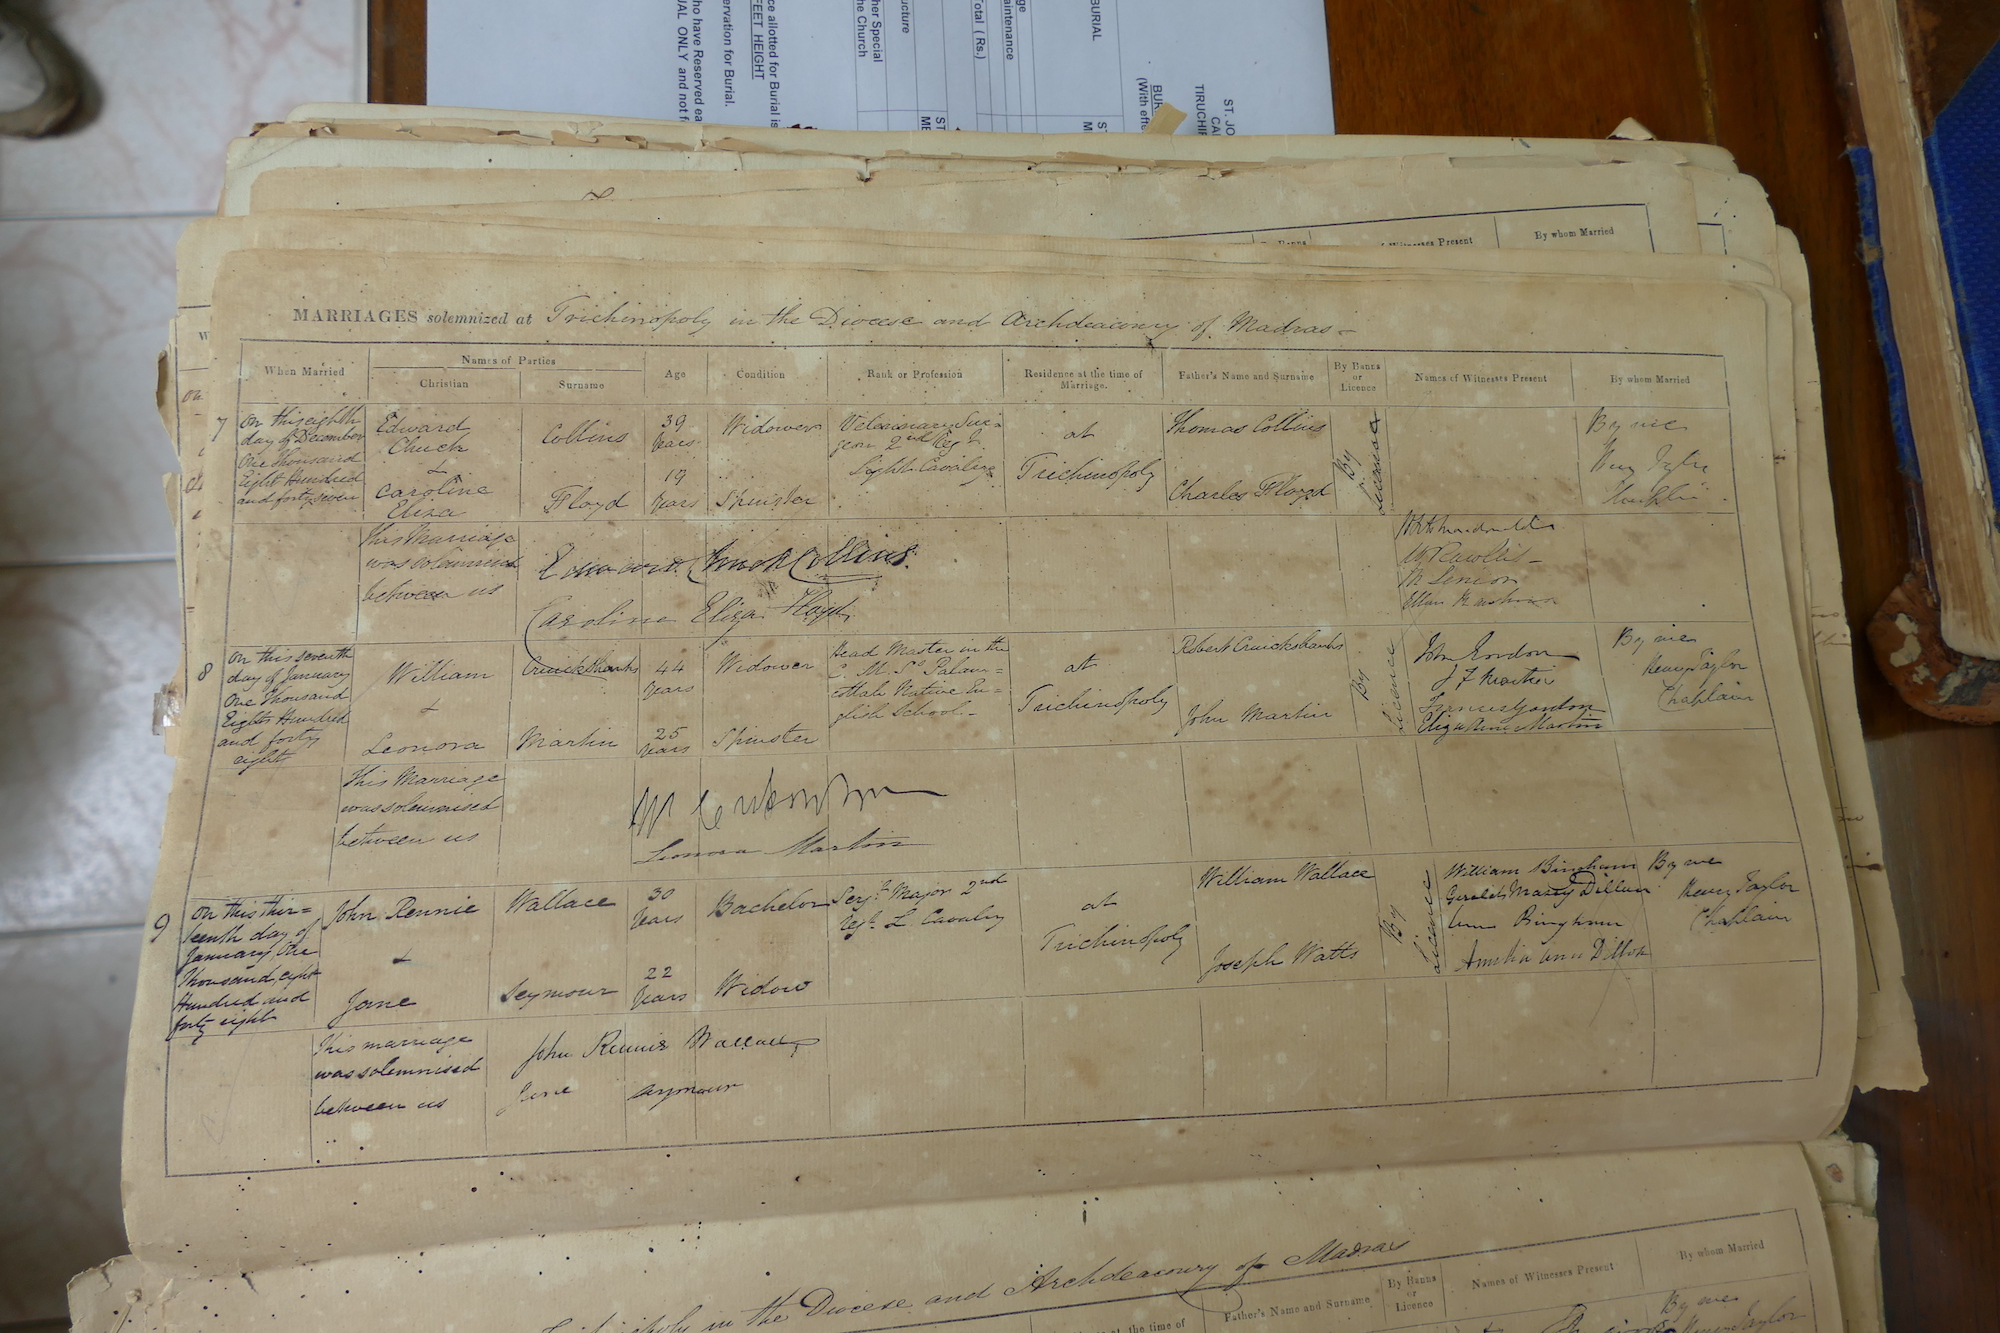 BURIAL
Total ( Rs.)
aintenance
ge
ucture
her Special
he Church
ce allotted for Burial is
FEET HEIGHT
ervation for Burial.
ho have Reserved ea
UAL ONLY and not f
By whom Married
MARRIAGES solemnized at Trichinopoly in the Diocese and Archdeaconry of Madras
When Married
Names of Parties
Christian
Surname
Age
Condition
Rank or Profession
Residence at the time of
Marriage.
Father's Name and Surname
By Banns
or
Licence
Names of Witnesses Present
By whom Married
7
On this eighth
day of December
One Thousand
Eight Hundred
and forty seven
Edward
Chuck
+
Caroline
Eliza
Collins
Floyd
39
Years
19
Years
Widower
Spinster
Veterinary Sur=
geon 2nd Regt.
Light Cavalry
at
Trichinopoly
Thomas Collins
Charles Floyd
By
Licence
By me
This Marriage
was solemnised
between us
Edward Chuck Collins
Caroline Eliza Floyd
8
On this seventh
day of January
One Thousand
Eight Hundred
and forty
eight
William
+
Leonora
Cruickshanks
Martin
44
Years
25
Years
Widower
Spinster
Head Master in the
C. M. So Palam=
cottah Native En=
glish School
at
Trichinopoly
Robert Cruickshanks
John Martin
By
Licence
John Gordon
Frances Gordon
Eliza Anne Martin
By me
Henry Taylor
Chaplain
This Marriage
was solemnised
between us
Leonora Martin
9
On this thir=
teenth day of
January One
Thousand eight
Hundred and
forty eight
John Rennie
+
Jane
Wallace
Seymour
30
Years
22
Years
Bachelor
Widow
Sergt. Major 2nd
Regt. L. Cavalry
at
Trichinopoly
William Wallace
Joseph Watts
By
Licence
William Bingham
Dillon
Bingham
Amelia Ann Dillon
By me
Henry Taylor
Chaplain
This marriage
was solemnised
between us
John Rennie Wallace
Jane Seymour
in the Diocese and Archdeaconry of Madras
the time of
Father's Name and Surname
By Banns
or
Licence
Names of Witnesses Present
By whom Married
By me
Henry Taylor